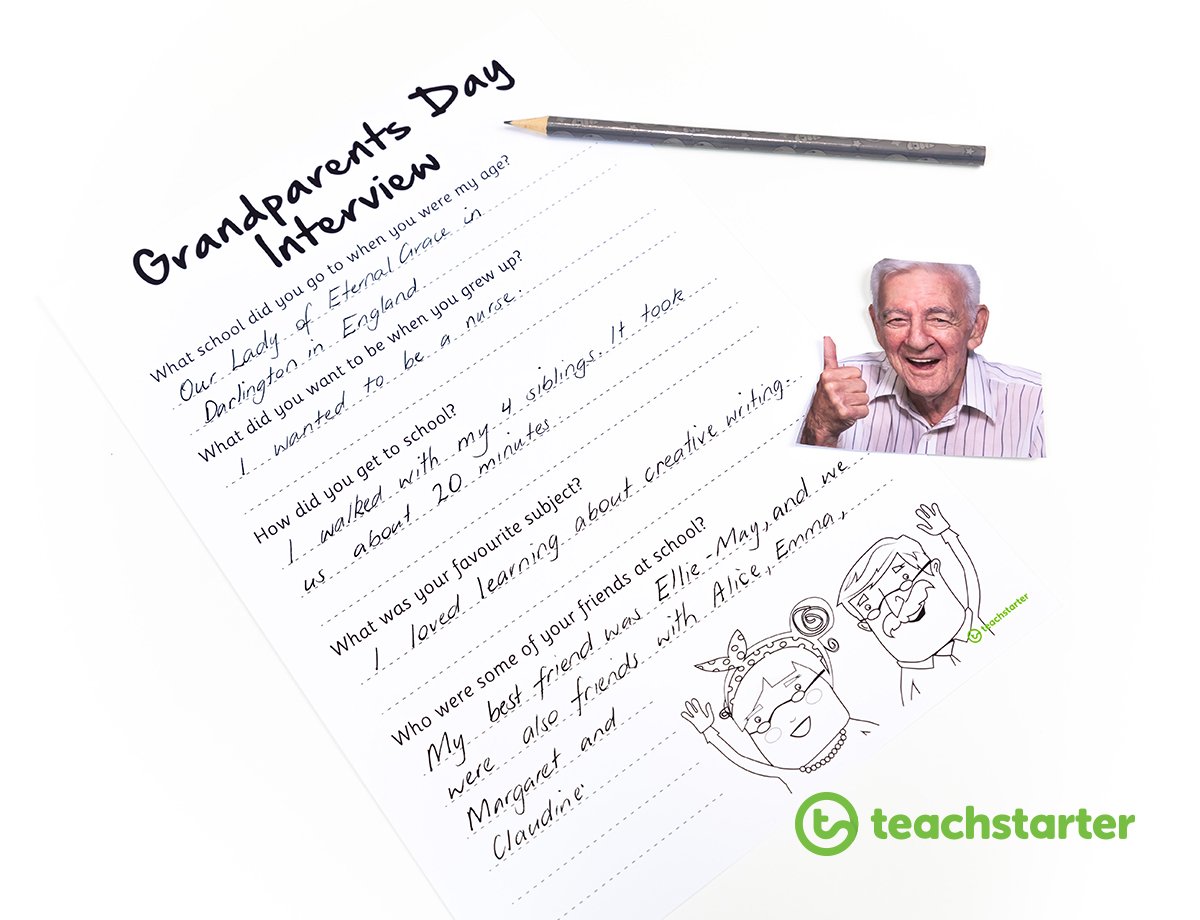 Grandparents Day
Interview
What school did you go to when you were my age?
Our Lady of Eternal Grace in
Darlington in England
What did you want to be when you grew up?
I wanted to be a nurse.
How did you get to school?
I walked with my 4 siblings. It took
us about 20 minutes
What was your favourite subject?
I loved learning about creative writing.
Who were some of your friends at school?
My best friend was Ellie-May, and we
were also friends with Alice, Emma,
Margaret and
Claudine.
teachstarter
teachstarter